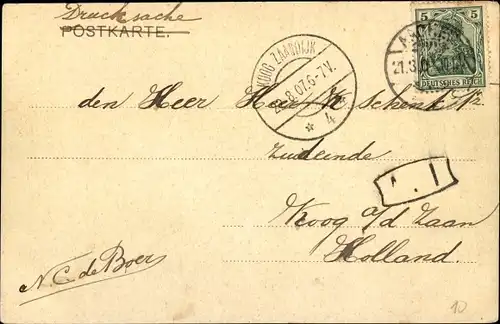 Drucksache
POSTKARTE.
5 5
DEUTSCHES REICH
KOOG ZAANDIJK
8.07.6-7V.
4
21.3
den Heer Heer K. Schenk
Zuideinde
Koog a/d Zaan
Holland
N. C. de Boer
10